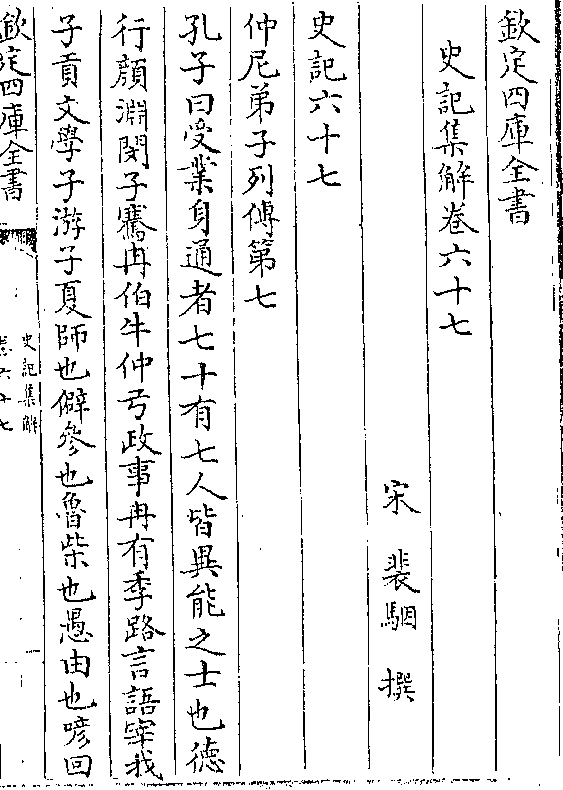 欽定四庫全書
史記集解卷六十七
宋 裴駰 撰
史記六十七
仲尼弟子列傳第七
孔子曰受業身通者七十有七人皆異能之士也德
行顔淵閔子騫冉伯牛仲弓政事冉有季路言語宰我
子貢文學子游子夏師也僻參也魯柴也愚由也喭回
欽定四庫全書
史記集解
卷六十七